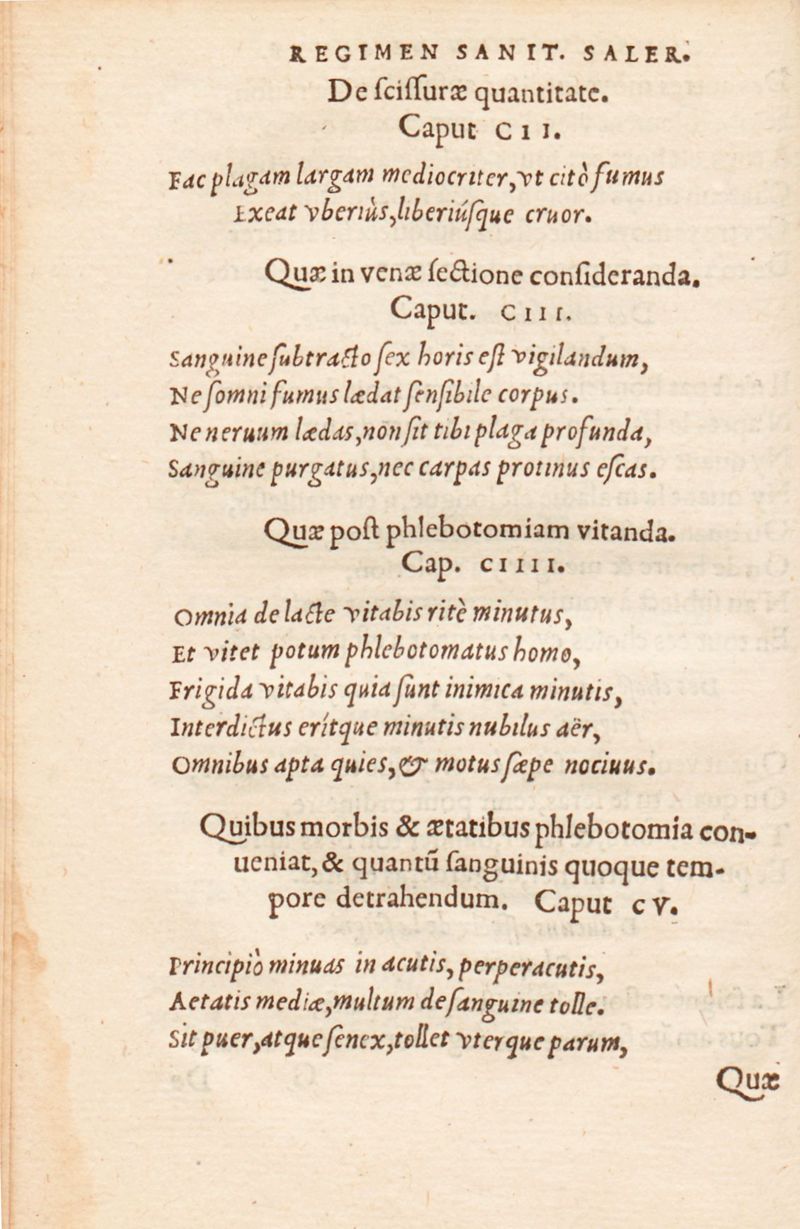 REGIMEN SANIT. SALER.
De ſciſſuræ quantitate.
Caput CII.
Fac plagam largam mediocriter,vt citò fumus
Exeat vberiùs,liberiúſque cruor.
Quæ in venæ ſectione conſideranda.
Caput. CIII.
Sanguine ſubtracto ſex horis eſt vigilandum,
Ne ſomni fumus lædat ſenſibile corpus.
Ne neruum lædas,non ſit tibi plaga profunda,
Sanguine purgatus,nec carpas protinus eſcas.
Quæ poſt phlebotomiam vitanda.
Cap. CIIII.
Omnia de lacte vitabis ritè minutus,
Et vitet potum phlebotomatus homo,
Frigida vitabis quia ſunt inimica minutis,
Interdictus erítque minutis nubilus aër,
Omnibus apta quies,& motus ſæpe nociuus.
Quibus morbis & ætatibus phlebotomia con-
ueniat,& quantũ ſanguinis quoque tem-
pore detrahendum. Caput CV.
Principiò minuas in acutis,perperacutis,
Aetatis mediæ,multum de ſanguine tolle.
Sit puer,atque ſenex,tollet vterque parum,
Quæ